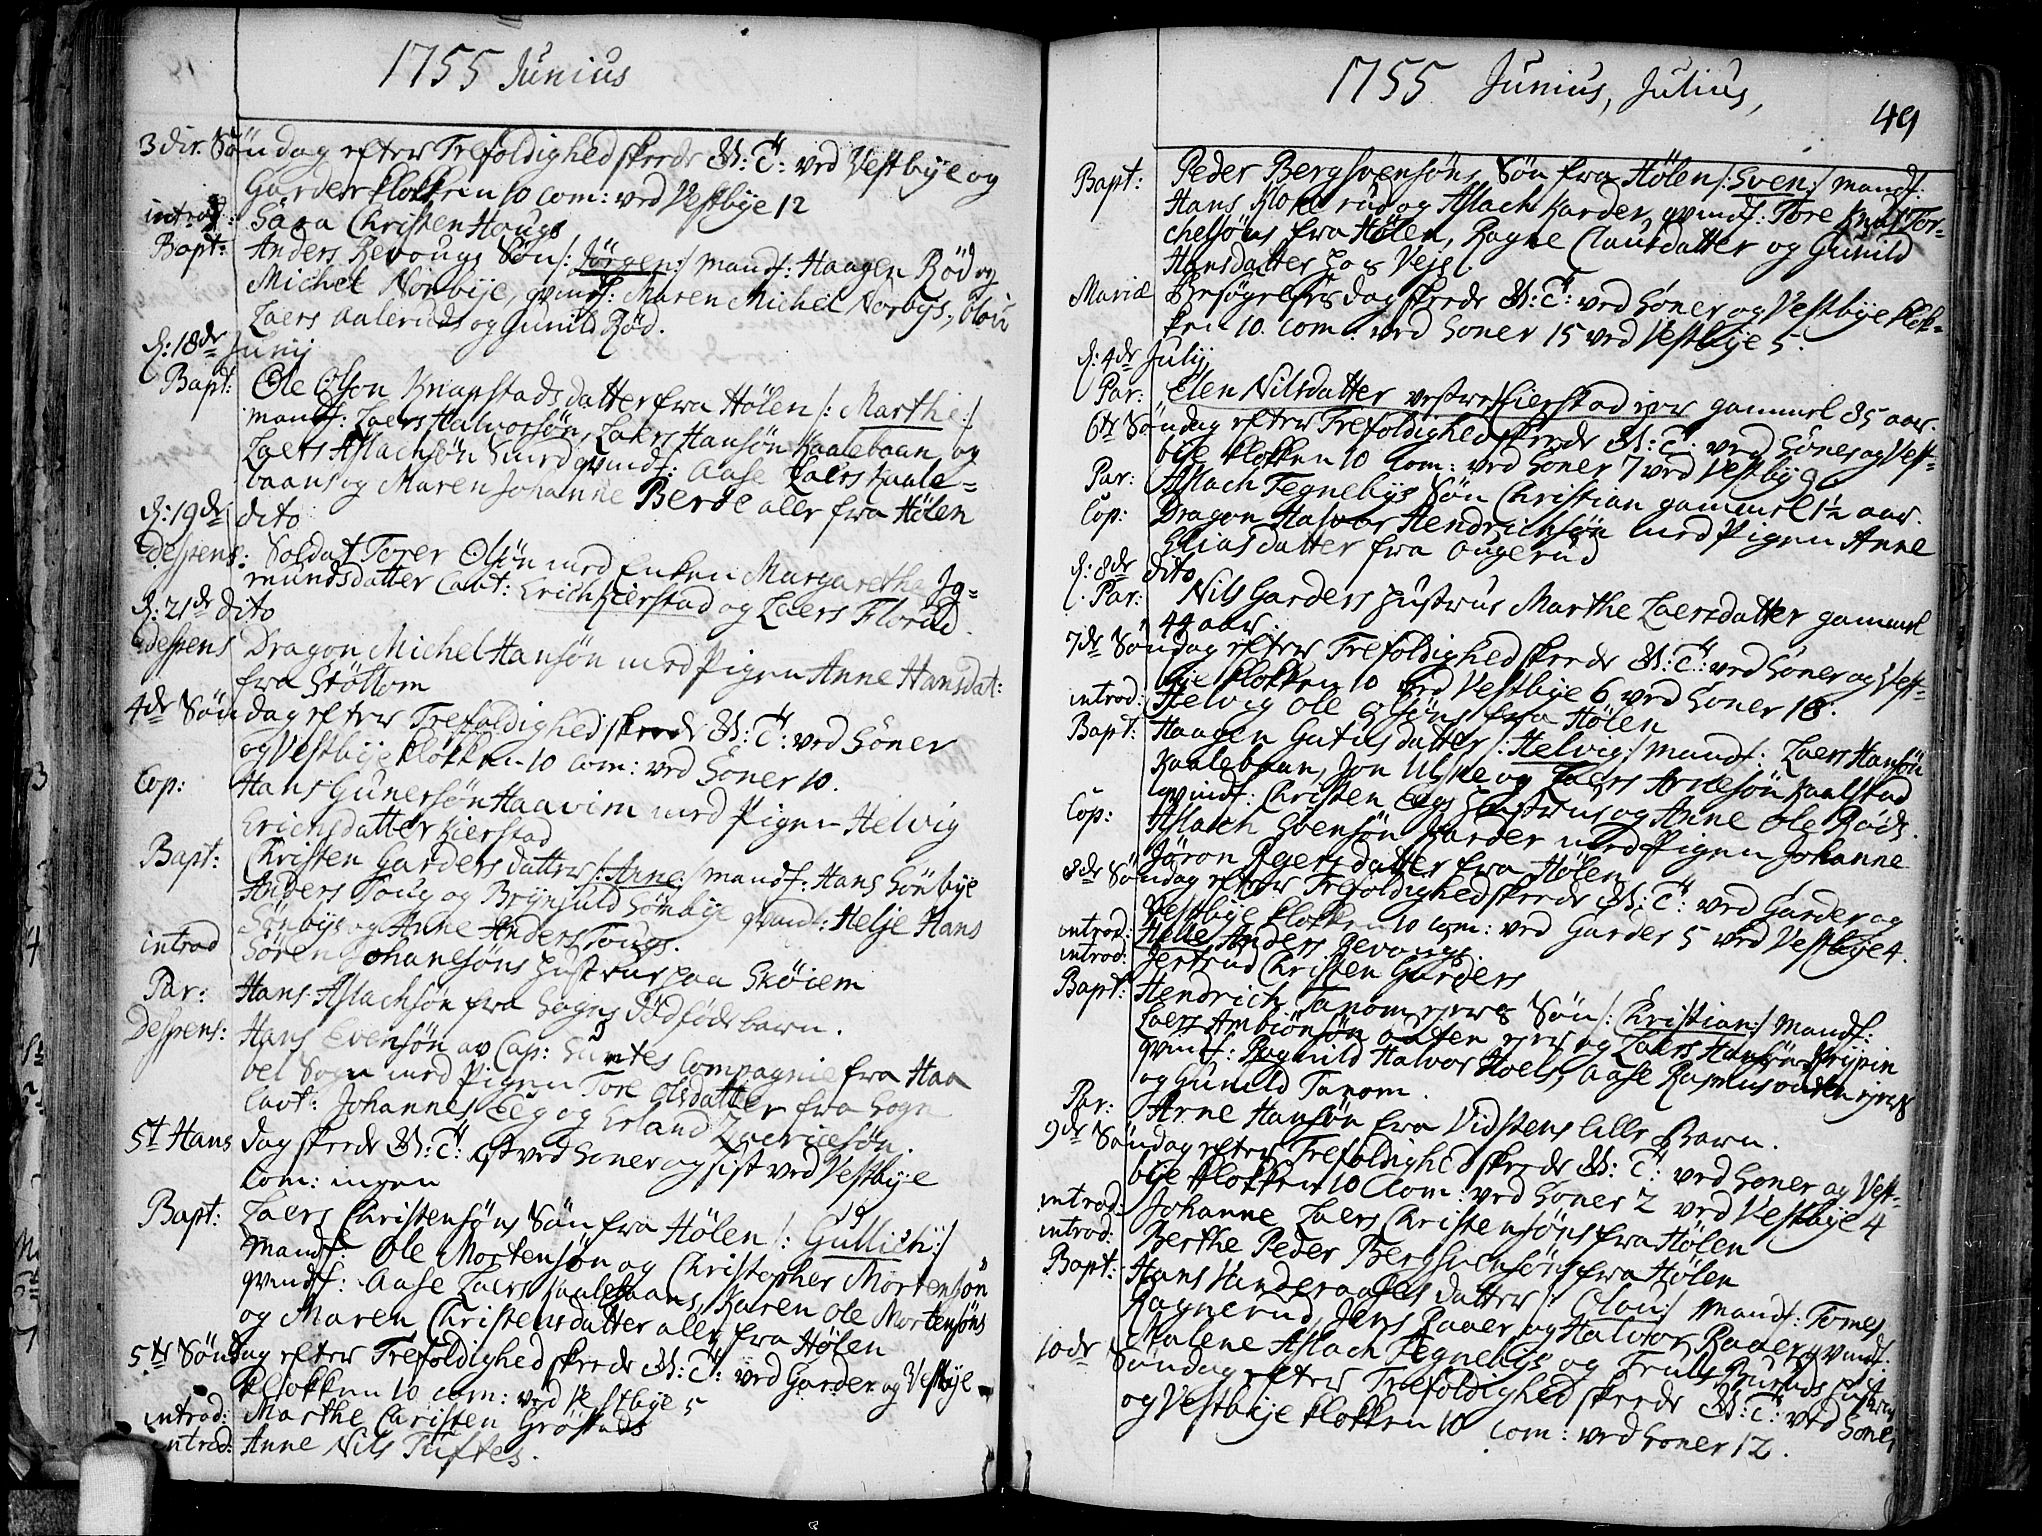 1755 Junius
3die Søndag efter Trefoldighed skeede G: T: ved Vestbye og
Garder klokken 10 com: ved Vestbye 12
introd: Sara Christen Hougs
Bapt: Anders Revougs Søn /: Jørgen :/ mandf: Haagen Rød og
Michel Norbye, qvindf: Maren Michel Norbys, Olou
Laers Aaleruds og Gunild Rød.
d: 18de Junij
Bapt: Ole Olson Knapstads datter fra Hølen /: Marthe :/
mandf: Laers Halvorsøn, Laers Hansøn Kaalebaan, og
Laers Aslachsøn Smed qvindf: Aase Laers Kaale=
baans og Maren Johanne Berde alle fra Hølen
d: 19de dito
despens: Soldat Torer Olsøn med Enken Margaretha Jg=
mundsdatter Caut: Erich Kierstad og Laers Florud.
d: 21de dito
despens Dragon Michel Hansøn med Pigen Anne Hansdat:
fra Støttom
4de Søndag efter Trefoldighed skeede G: T: ved Soner
og Vestbye klokken 10 com: ved Soner 10.
Cop: Hans Gunersøn Haavim med Pigen Helvig
Erichsdatter Kierstad
Bapt: Christen Garders datter /: Arne :/ mandf: Hans Sønbye
Anders Toug og Brynjuld Sønbye qvindf: Helje Hans
Sønbys og Anne Anders Tougs.
introd Søren Johanesøns Hustrue paa Skøiem
Par: Hans Aslachsøn fra Sogns Dødføde barn.
Despens: Hans Evensøn av Cap: Suntes Compagnie fra Haa
bel Sogn med Pigen Tore Olsdatter fra Sogn
Caut: Johannes Eeg og Erland
St Hans dag skeede G: T: Est ved Soner og sist ved Vestbye
Com: ingen
Bapt: Laers Christensøns Søn fra Hølen /: Gullich :/
mandf: Ole Mortensøn og Christopher Mortensøn
qvindf: Aase Laers Kaalebaans, Karen Ole Mortensøns
og Maren Christensdatter alle fra Hølen
5te Søndag efter Trefoldighed skeede G: T: ved Garder og Vestbye
klokken 10 com: ved Vestbye 5
introd: Marthe Christen Grøstads
introd: Anne Nils Tuftes.
1755 Junius, Julius,
49
Bapt: Peder Bergsvensøns Søn fra Hølen /: Sven :/ mandf:
Hans Klokerud og Aslach Karder, qvindf: Tore Knut Tor=
chelsøns fra Hølen, Ragne Clausdatter og Gunild
Hansdatter
Mariæ Besøgelses dag skeede G: T: ved Soner og Vestbye klok=
ken 10. com: ved Soner 15 ved Vestbye 5.
d: 4de Julij
Par: Elen Nilsdatter vestre Kierstad ejer gammel 85 aar.
6te Søndag efter Trefoldighed skeede G: T: ved Soner og Vest=
bye klokken 10 Com: ved Soner 7 ved Vestbye
Par: Aslach Tegnebys Søn Christian gammel 1½ aar.
Cop: Dragon Halvor Hendrichsøn med Pigen Anne
Eliasdatter fra Ougerud
d: 8de dito
Par: Nils Garders Hustrue Marthe Laersdatter gammel
44 aar.
7de Søndag efter Trefoldighed skeede G: T: ved Soner og Vest=
bye klokken 10 ved Vestbye 6 ved Soner 18.
introd: Helvig Ole Olsøns fra Hølen
Bapt: Haagen Gutus datter /: Helvig :/ mandf: Laers Hansøn
Kaalebaan, Jon Ulske og Laers Arnesøn Kaalstad
qvindf: Christen Eegs Hustrue og Anne Ole Røds.
Cop: Aslach Svensøn Karder med Pigen Johanne
Jøron Rejersdatter fra Hølen
8de Søndag efter Trefoldighed skeede G: T: ved Garder og
Vestbye klokken 10 com: ved Garder 5 ved Vestbye 4.
introd: Helle Anders Revougs
introd: Gertrud Christen Garders
Bapt: Hendrich Tanom ejers Søn /: Christian :/ mandf:
Laers Ambiønsøn Østen ejer og Laers Hansøn
qvindf: Ragnild Halvor Hoels, Aase Rasmus østen ejers
og Gunild Tanom.
Par: Arne Hansøn fra Vidstens lille Barn.
9de Søndag efter Trefoldighed skeede G: T: ved Soner og Vest=
bye klokken 10 Com: ved Soner 2 ved Vestbye 4
introd: Johanne Laers Christensøns fra Hølen
introd: Berthe Peder Bergsvensøns fra Hølen
Bapt: Hans Vanderaaens datter /: Olou :/ mandf: Tomes
Ragnerud, Jens Raaer og Halvor Raaer, qvindf:
Malene Aslach Tegnebys og Truls Buruds Hustrue
10de Søndag efter Trefoldighed skeede G: T: ved Soner
og Vestbye klokken 10 com: ved Soner 12.